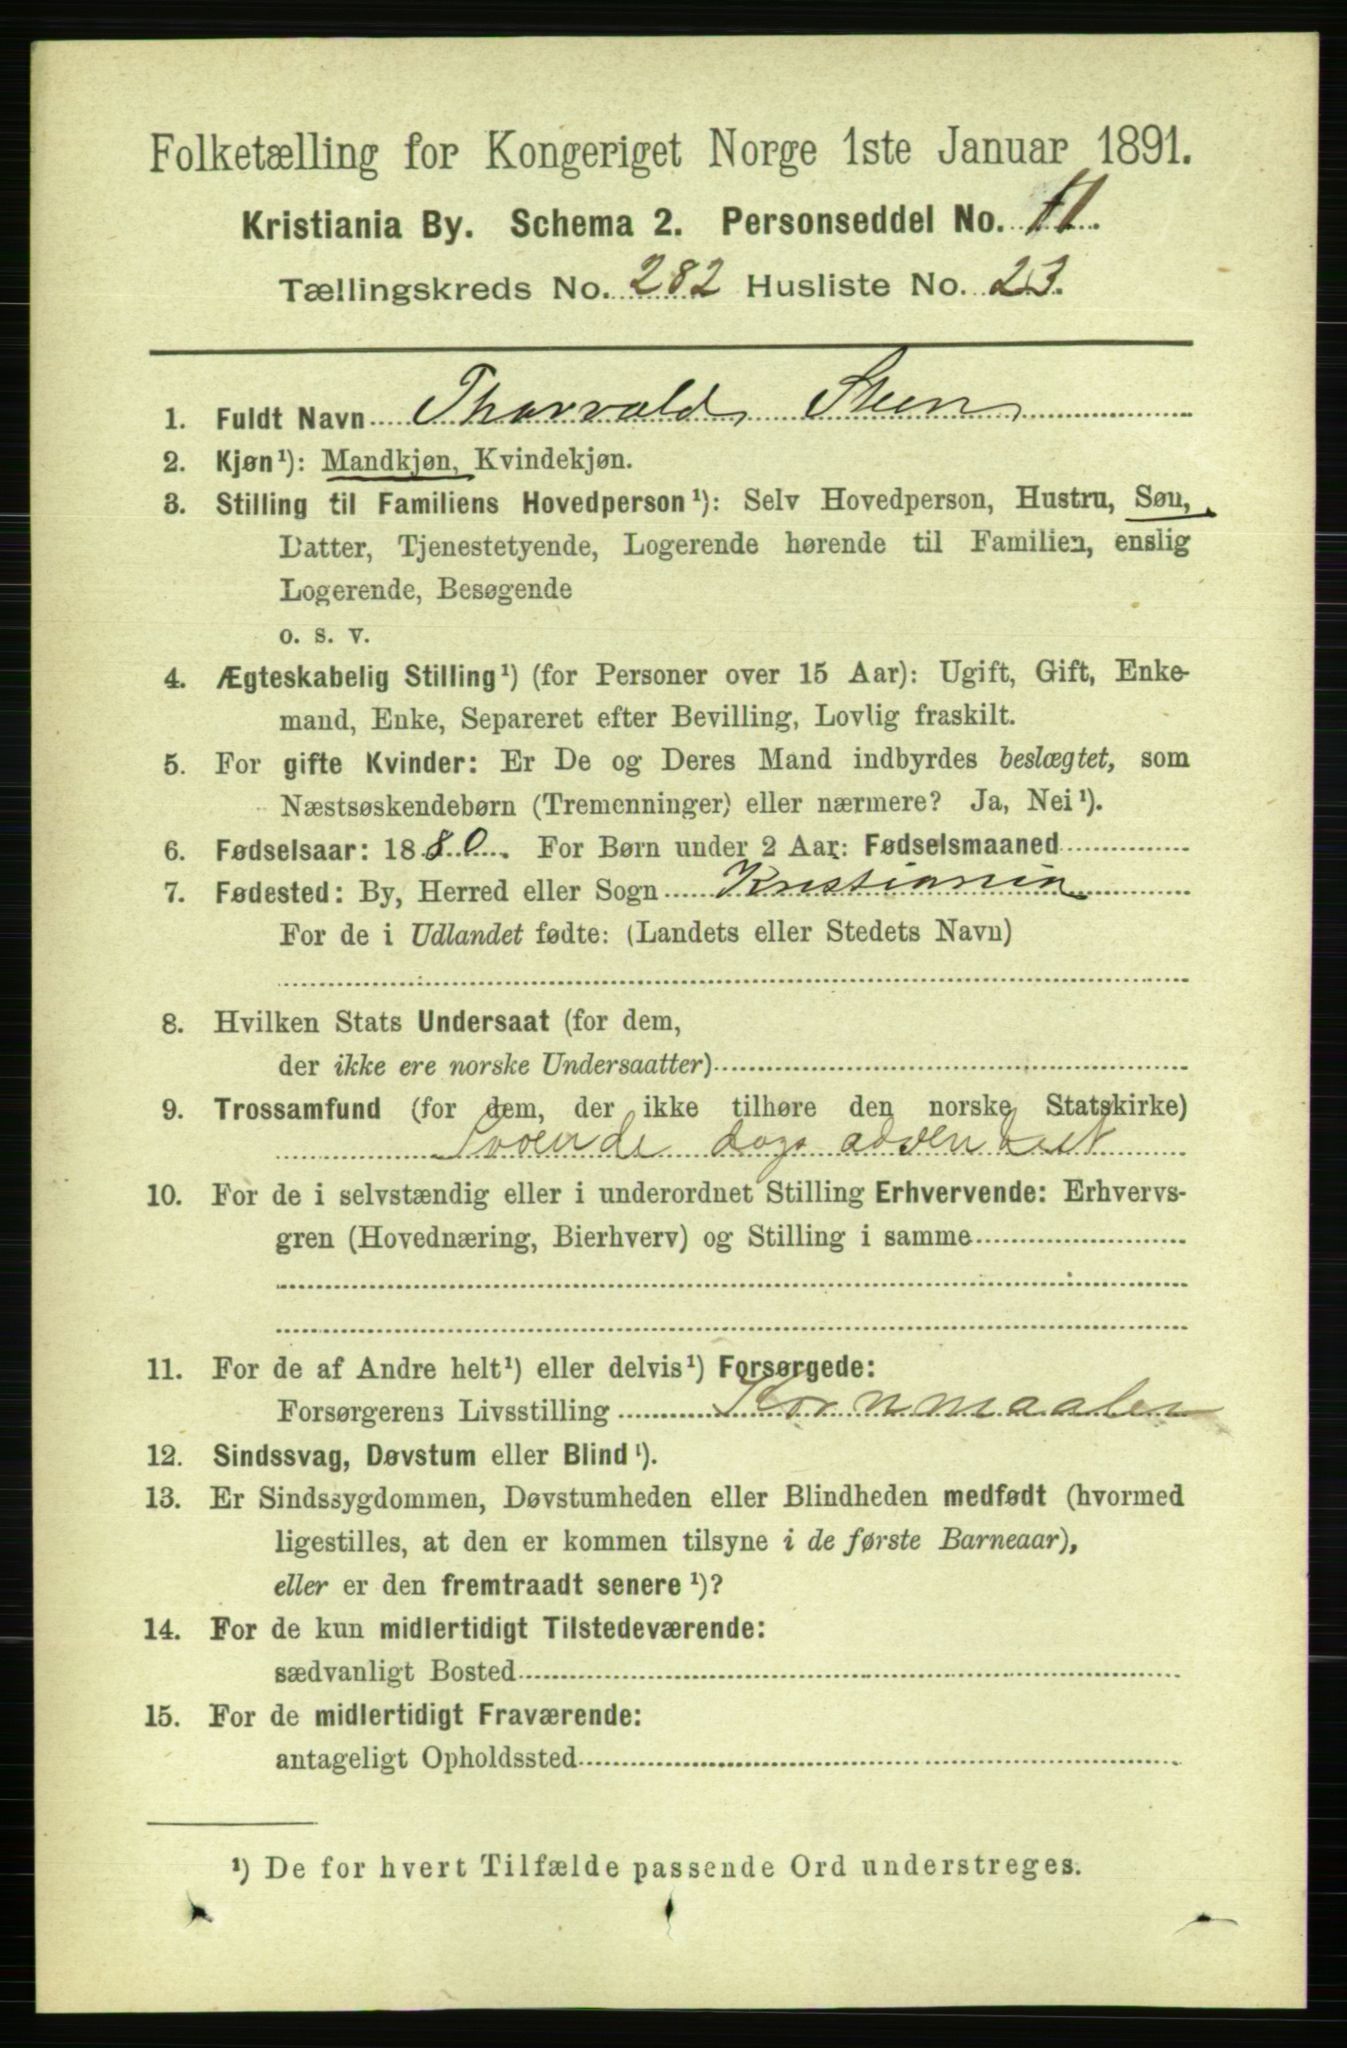 Folketælling for Kongeriget Norge 1ste Januar 1891.
Kristiania By. Schema 2. Personseddel No. 11.
Tællingskreds No. 282 Husliste No. 23.
1. Fuldt Navn Thorvald Steen
2. Kjøn¹): Mandkjøn, Kvindekjøn.
3. Stilling til Familiens Hovedperson¹): Selv Hovedperson, Hustru, Søn,
Datter, Tjenestetyende, Logerende hørende til Familien, enslig
Logerende, Besøgende
o. s. v.
4. Ægteskabelig Stilling¹) (for Personer over 15 Aar): Ugift, Gift, Enke-
mand, Enke, Separeret efter Bevilling, Lovlig fraskilt.
5. For gifte Kvinder: Er De og Deres Mand indbyrdes beslægtet, som
Næstsøskendebørn (Tremenninger) eller nærmere? Ja, Nei¹).
6. Fødselsaar: 1880. For Børn under 2 Aar: Fødselsmaaned
7. Fødested: By, Herred eller Sogn Kristiania
For de i Udlandet fødte: (Landets eller Stedets Navn)
8. Hvilken Stats Undersaat (for dem,
der ikke ere norske Undersaatter)
9. Trossamfund (for dem, der ikke tilhøre den norske Statskirke)
Svoende dags advent
10. For de i selvstændig eller i underordnet Stilling Erhvervende: Erhvervs-
gren (Hovednæring, Bierhverv) og Stilling i samme
11. For de af Andre helt¹) eller delvis¹) Forsørgede:
Forsørgerens Livsstilling Kornmaaler
12. Sindssvag, Døvstum eller Blind¹).
13. Er Sindssygdommen, Døvstumheden eller Blindheden medfødt (hvormed
ligestilles, at den er kommen tilsyne i de første Barneaar),
eller er den fremtraadt senere¹)?
14. For de kun midlertidigt Tilstedeværende:
sædvanligt Bosted
15. For de midlertidigt Fraværende:
antageligt Opholdssted
¹) De for hvert Tilfælde passende Ord understreges.